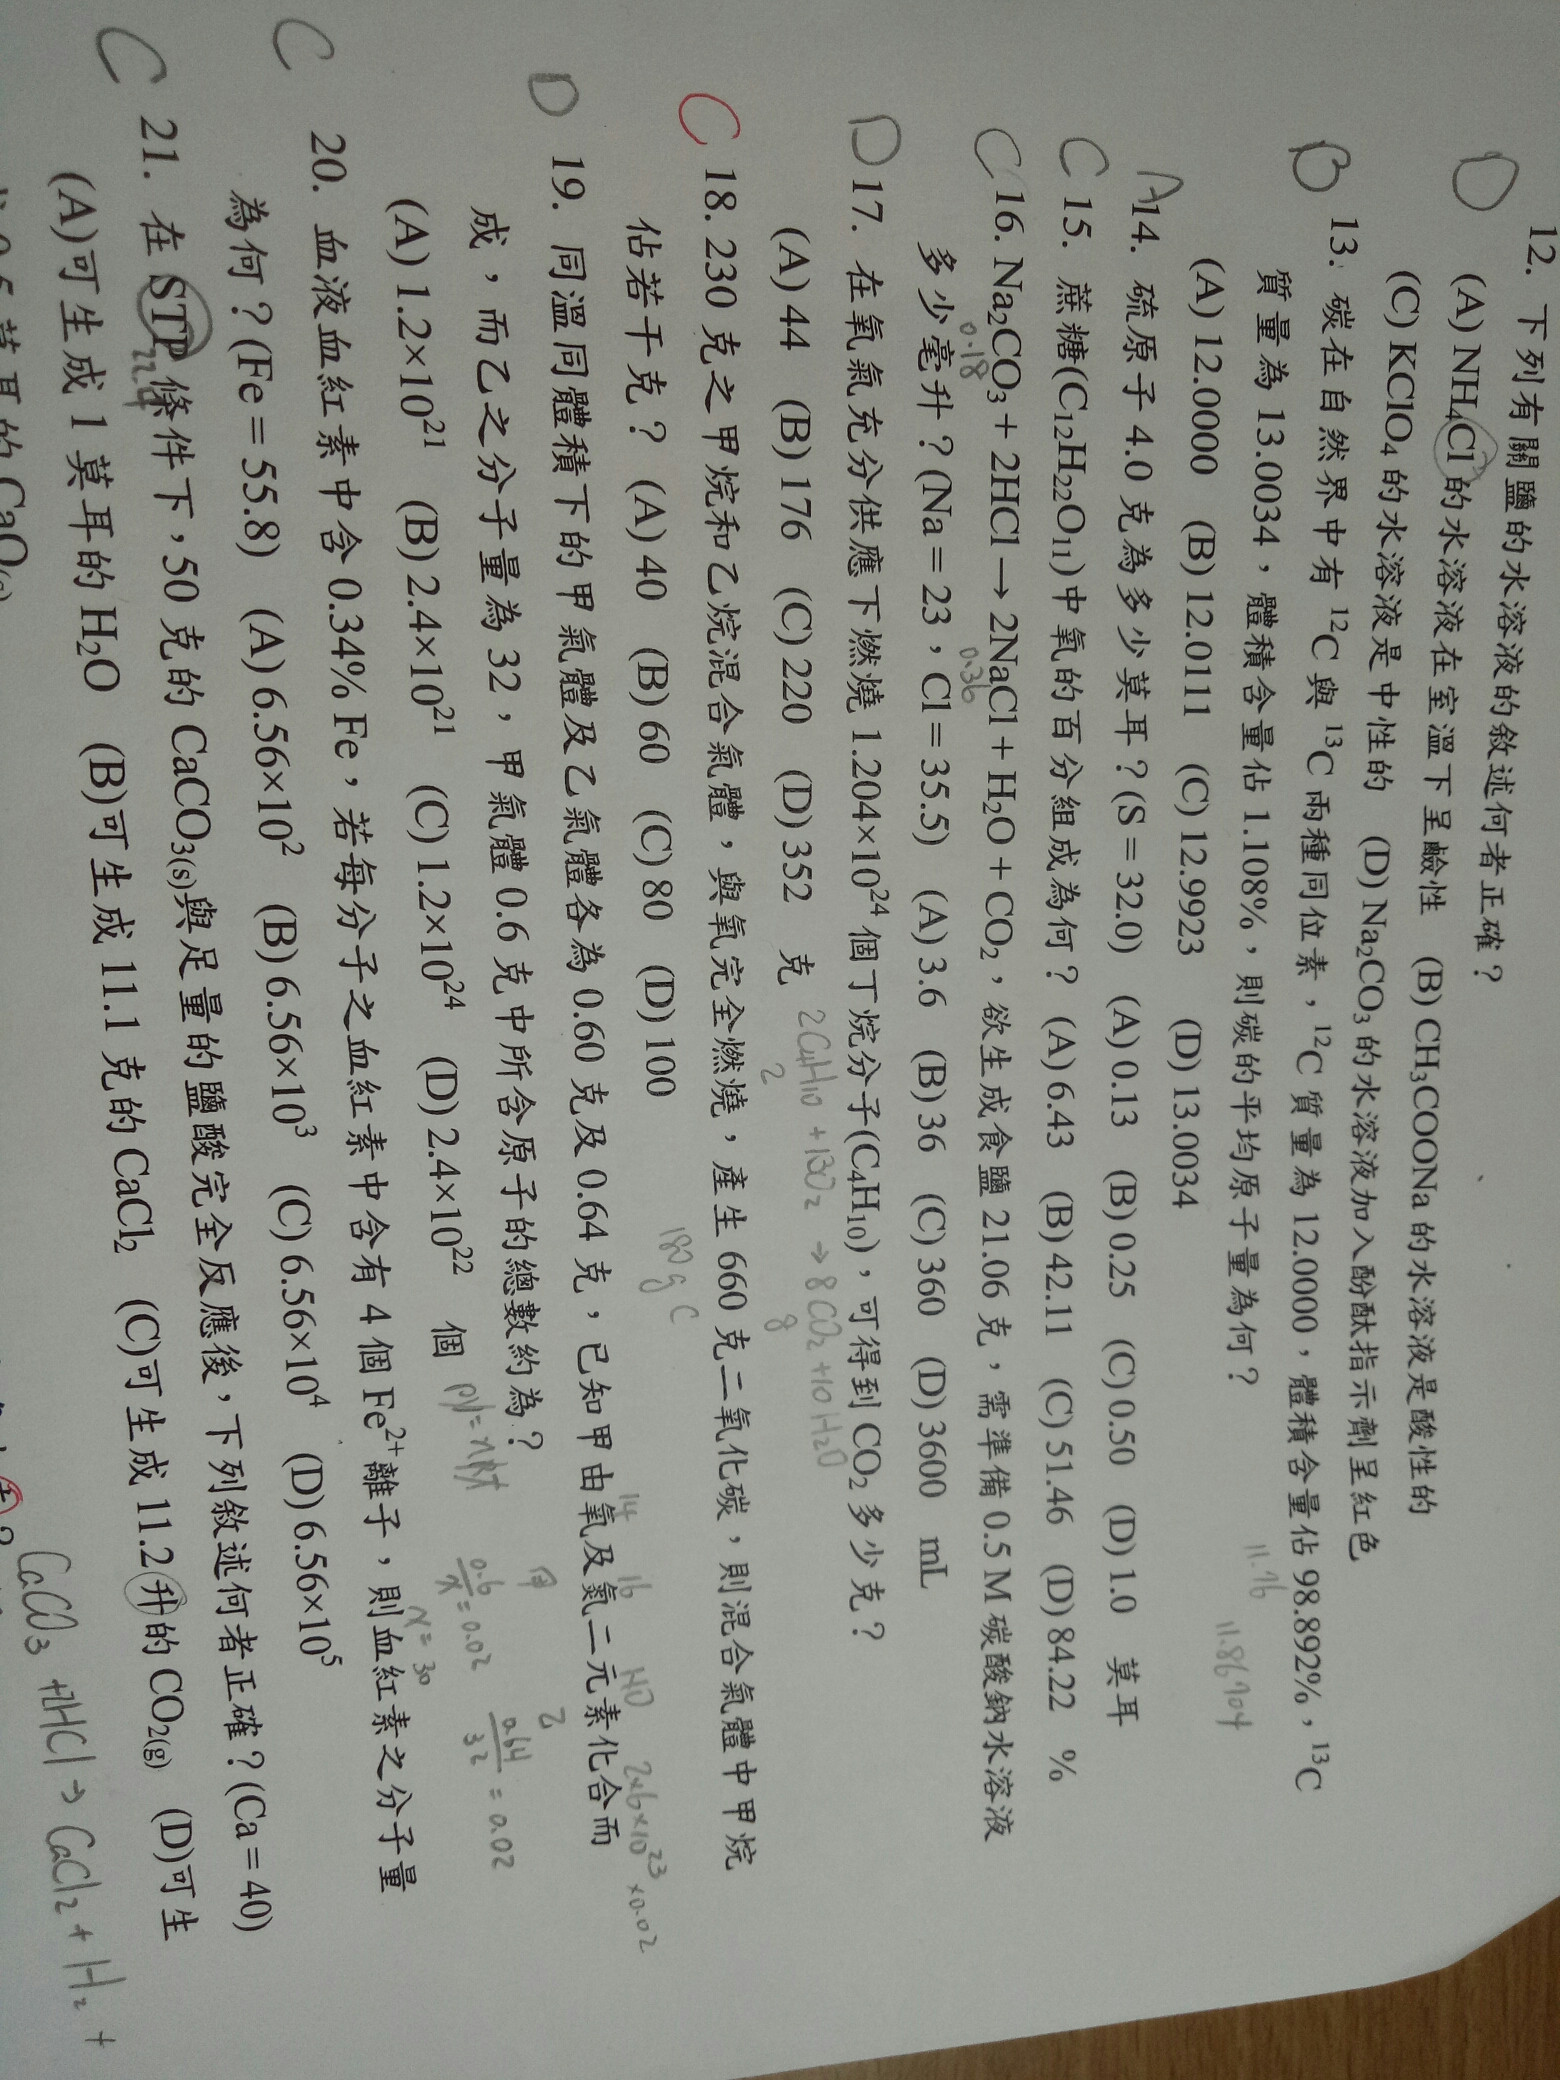 D 12. 下列有關鹽的水溶液的敘述何者正確？
(A) NH₄Cl 的水溶液在室溫下呈鹼性 (B) CH₃COONa 的水溶液是酸性的
(C) KClO₄ 的水溶液是中性的 (D) Na₂CO₃ 的水溶液加入酚酞指示劑呈紅色
B 13. 碳在自然界中有 ¹²C 與 ¹³C 兩種同位素，¹²C 質量為 12.0000，體積含量佔 98.892%，¹³C
質量為 13.0034，體積含量佔 1.108%，則碳的平均原子量為何？
11.76
(A) 12.0000 (B) 12.0111 (C) 12.9923 (D) 13.0034
11.86704
A 14. 硫原子 4.0 克為多少莫耳？(S＝32.0) (A) 0.13 (B) 0.25 (C) 0.50 (D) 1.0 莫耳
C 15. 蔗糖(C₁₂H₂₂O₁₁)中氧的百分組成為何？ (A) 6.43 (B) 42.11 (C) 51.46 (D) 84.22 %
C 16. Na₂CO₃＋2HCl→2NaCl＋H₂O＋CO₂，欲生成食鹽 21.06 克，需準備 0.5 M 碳酸鈉水溶液
0.18 0.36
多少毫升？(Na＝23，Cl＝35.5) (A) 3.6 (B) 36 (C) 360 (D) 3600 mL
D 17. 在氧氣充分供應下燃燒 1.204×10²⁴ 個丁烷分子(C₄H₁₀)，可得到 CO₂ 多少克？
2C₄H₁₀ + 13O₂ → 8CO₂ + 10H₂O
(A) 44 (B) 176 (C) 220 (D) 352 克
2 8
C 18. 230 克之甲烷和乙烷混合氣體，與氧完全燃燒，產生 660 克二氧化碳，則混合氣體中甲烷
180g C
佔若干克？ (A) 40 (B) 60 (C) 80 (D) 100
14 16 NO 2×6×10²³ ×0.02
D 19. 同溫同體積下的甲氣體及乙氣體各為 0.60 克及 0.64 克，已知甲由氧及氮二元素化合而
成，而乙之分子量為 32，甲氣體 0.6 克中所含原子的總數約為？
甲 乙
(A) 1.2×10²¹ (B) 2.4×10²¹ (C) 1.2×10²⁴ (D) 2.4×10²² 個
0.6/x = 0.02 0.64/32 = 0.02
x = 30
C 20. 血液血紅素中含 0.34% Fe，若每分子之血紅素中含有 4 個 Fe²⁺離子，則血紅素之分子量
為何？(Fe＝55.8) (A) 6.56×10² (B) 6.56×10³ (C) 6.56×10⁴ (D) 6.56×10⁵
C 21. 在 STP 條件下，50 克的 CaCO₃₍ₛ₎與足量的鹽酸完全反應後，下列敘述何者正確？(Ca＝40)
22.4
(A)可生成 1 莫耳的 H₂O (B)可生成 11.1 克的 CaCl₂ (C)可生成 11.2 升的 CO₂₍g₎ (D)可生
CaCO₃ + 2HCl → CaCl₂ + H₂ +
莫耳的 CaO₍ₛ₎